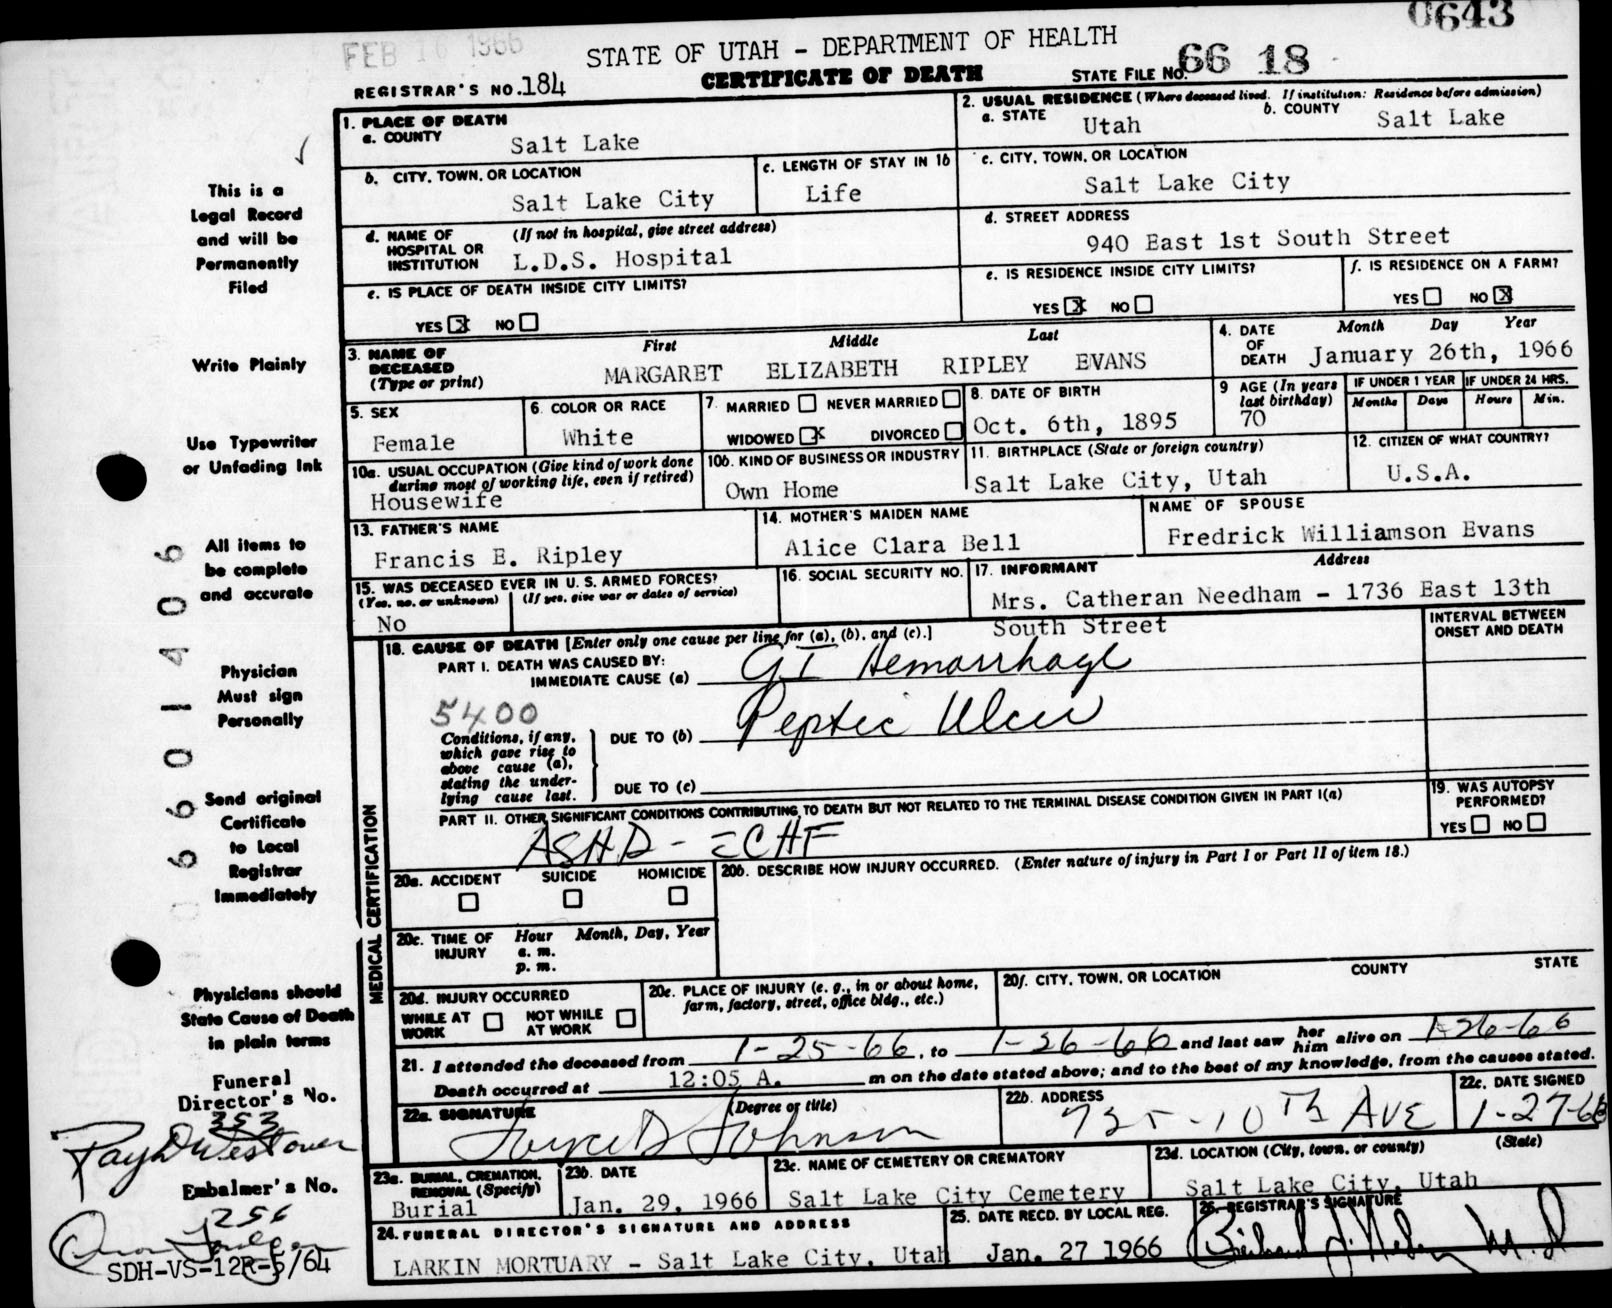 0643
FEB 16 1966
STATE OF UTAH - DEPARTMENT OF HEALTH
CERTIFICATE OF DEATH
REGISTRAR'S NO. 184
STATE FILE NO. 66 18
This is a
Legal Record
and will be
Permanently
Filed
Write Plainly
Use Typewriter
or Unfading Ink
All items to
be complete
and accurate
Physician
Must sign
Personally
Send original
Certificate
to Local
Registrar
Immediately
Physicians should
State Cause of Death
in plain terms
Funeral
Director's No.
353
Embalmer's No.
256
SDH-VS-12R-5/64
1. PLACE OF DEATH
a. COUNTY Salt Lake
2. USUAL RESIDENCE (Where deceased lived. If institution: Residence before admission)
a. STATE Utah b. COUNTY Salt Lake
b. CITY, TOWN, OR LOCATION Salt Lake City
c. LENGTH OF STAY IN 1b Life
c. CITY, TOWN, OR LOCATION
Salt Lake City
d. NAME OF HOSPITAL OR INSTITUTION (If not in hospital, give street address)
L.D.S. Hospital
d. STREET ADDRESS
940 East 1st South Street
e. IS PLACE OF DEATH INSIDE CITY LIMITS?
YES X NO
e. IS RESIDENCE INSIDE CITY LIMITS?
YES X NO
f. IS RESIDENCE ON A FARM?
YES NO X
3. NAME OF DECEASED (Type or print)
First Middle Last
MARGARET ELIZABETH RIPLEY EVANS
4. DATE OF DEATH Month Day Year
January 26th, 1966
5. SEX
Female
6. COLOR OR RACE
White
7. MARRIED NEVER MARRIED
WIDOWED X DIVORCED
8. DATE OF BIRTH
Oct. 6th, 1895
9 AGE (In years last birthday)
70
IF UNDER 1 YEAR
Months Days
IF UNDER 24 HRS.
Hours Min.
10a. USUAL OCCUPATION (Give kind of work done during most of working life, even if retired)
Housewife
10b. KIND OF BUSINESS OR INDUSTRY
Own Home
11. BIRTHPLACE (State or foreign country)
Salt Lake City, Utah
12. CITIZEN OF WHAT COUNTRY?
U.S.A.
13. FATHER'S NAME
Francis E. Ripley
14. MOTHER'S MAIDEN NAME
Alice Clara Bell
NAME OF SPOUSE
Fredrick Williamson Evans
15. WAS DECEASED EVER IN U. S. ARMED FORCES?
(Yes, no, or unknown) (If yes, give war or dates of service)
No
16. SOCIAL SECURITY NO.
17. INFORMANT Address
Mrs. Catheran Needham - 1736 East 13th
South Street
MEDICAL CERTIFICATION
18. CAUSE OF DEATH [Enter only one cause per line for (a), (b), and (c).]
INTERVAL BETWEEN ONSET AND DEATH
PART I. DEATH WAS CAUSED BY:
IMMEDIATE CAUSE (a) GI Hemorrhage
5400
Conditions, if any, which gave rise to above cause (a), stating the underlying cause last.
DUE TO (b) Peptic Ulcer
DUE TO (c)
PART II. OTHER SIGNIFICANT CONDITIONS CONTRIBUTING TO DEATH BUT NOT RELATED TO THE TERMINAL DISEASE CONDITION GIVEN IN PART I(a)
ASHD - c̄ CHF
19. WAS AUTOPSY PERFORMED?
YES NO
20a. ACCIDENT SUICIDE HOMICIDE
20b. DESCRIBE HOW INJURY OCCURRED. (Enter nature of injury in Part I or Part II of item 18.)
20c. TIME OF INJURY Hour Month, Day, Year
a. m.
p. m.
20d. INJURY OCCURRED
WHILE AT WORK NOT WHILE AT WORK
20e. PLACE OF INJURY (e. g., in or about home, farm, factory, street, office bldg., etc.)
20f. CITY, TOWN, OR LOCATION COUNTY STATE
21. I attended the deceased from 1-25-66, to 1-26-66 and last saw her him alive on 1-26-66
Death occurred at 12:05 A. m on the date stated above; and to the best of my knowledge, from the causes stated.
22a. SIGNATURE (Degree or title)
Johnson
22b. ADDRESS
735-10th AVE
22c. DATE SIGNED
1-27-66
23a. BURIAL, CREMATION, REMOVAL (Specify)
Burial
23b. DATE
Jan. 29, 1966
23c. NAME OF CEMETERY OR CREMATORY
Salt Lake City Cemetery
23d. LOCATION (City, town, or county) (State)
Salt Lake City, Utah
24. FUNERAL DIRECTOR'S SIGNATURE AND ADDRESS
LARKIN MORTUARY - Salt Lake City, Utah
25. DATE RECD. BY LOCAL REG.
Jan. 27 1966
26. REGISTRAR'S SIGNATURE
M.D
06601406